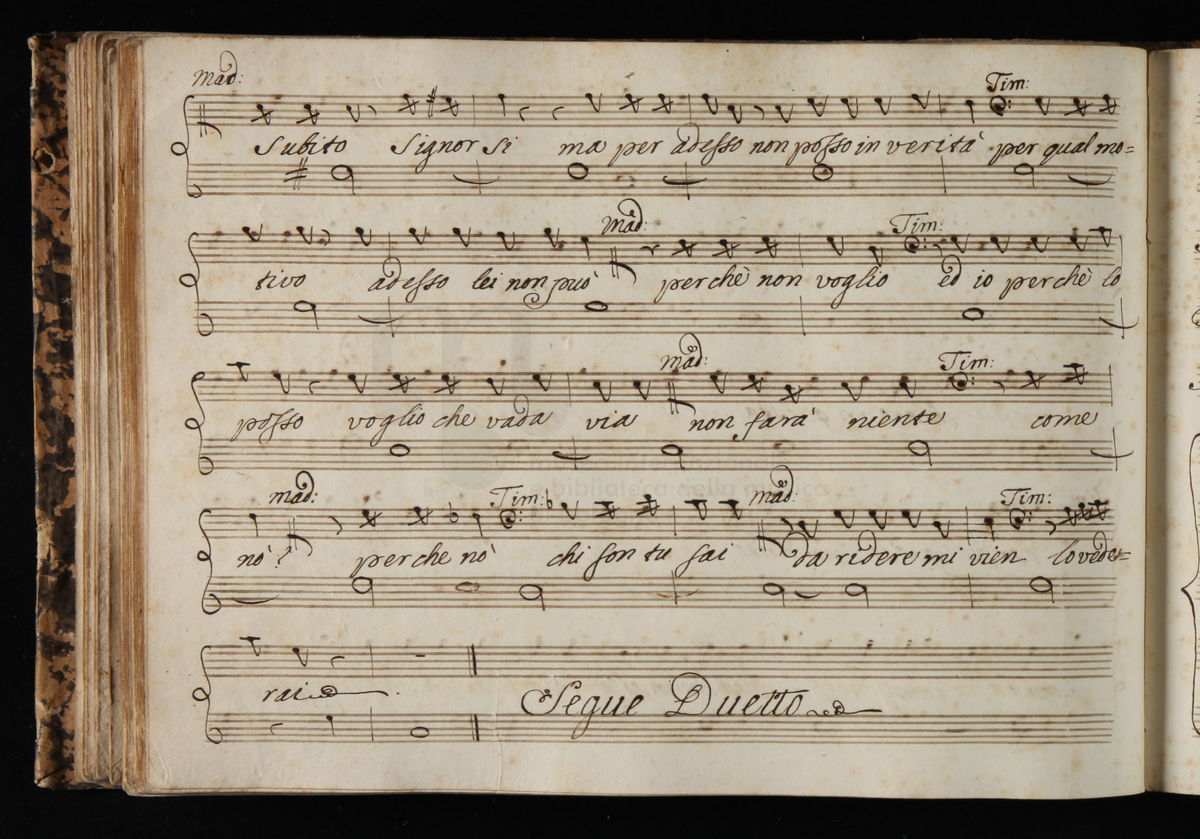 Mad: Tim:
Subito Signor si ma per adesso non posso in verità per qual mo=
Mad: Tim:
tivo adesso lei non può perchè non voglio ed io perchè lo
Mad: Tim:
posso voglio che vada via non farà niente come
mad: Tim: mad: Tim:
nò? perche nò chi son tu sai da ridere mi vien lo vede=
rai
Segue Duetto